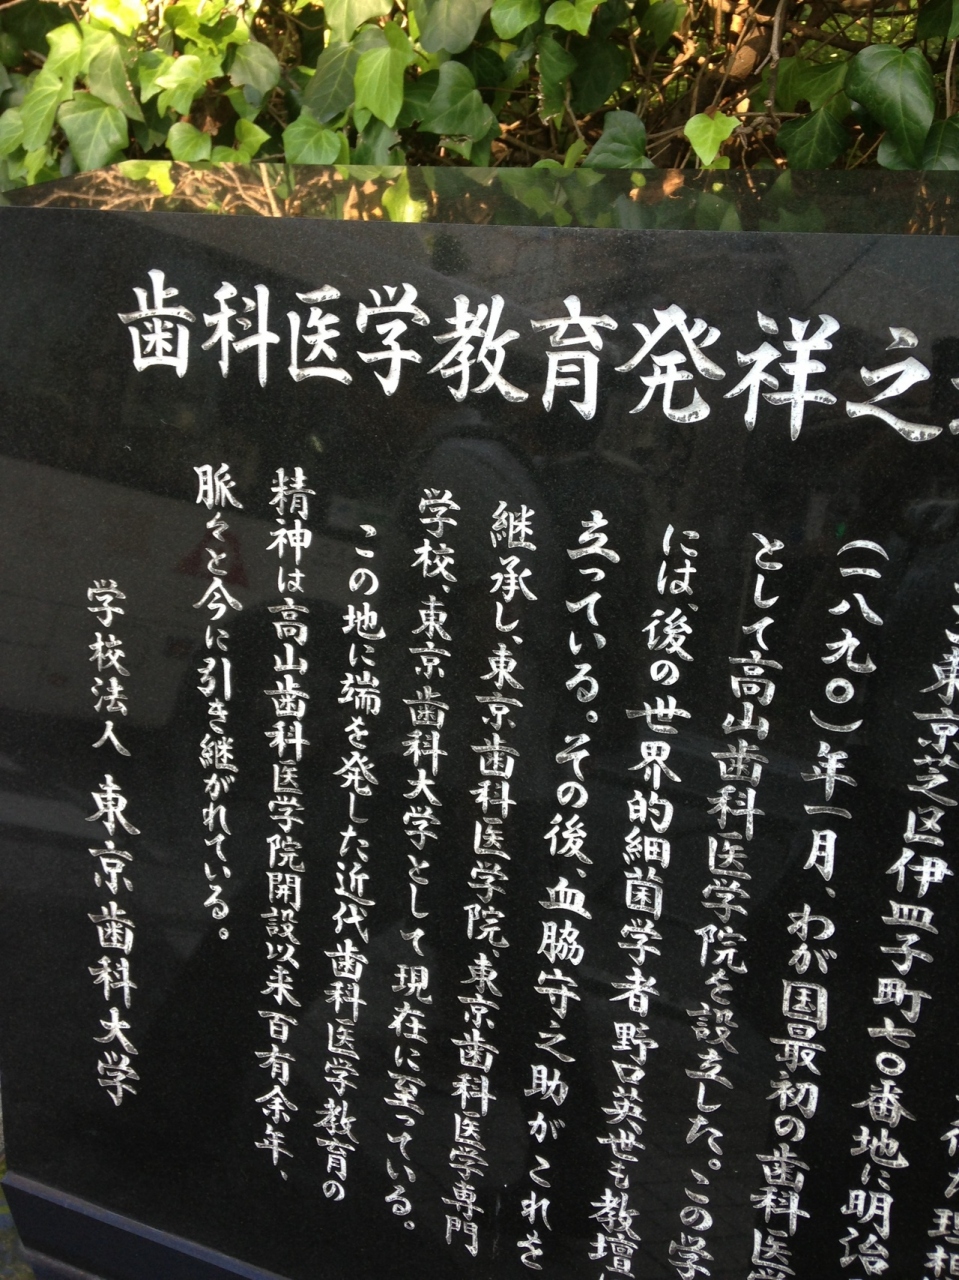 歯科医学教育発祥之
東京芝区伊皿子町七〇番地に明治
(一八九〇)年一月、わが国最初の歯科医学
として高山歯科医学院を設立した。この学
には、後の世界的細菌学者野口英世も教壇に
立っている。その後、血脇守之助がこれを
継承し、東京歯科医学院、東京歯科医学専門
学校、東京歯科大学として現在に至っている。
この地に端を発した近代歯科医学教育の
精神は高山歯科医学院開設以来百有余年、
脈々と今に引き継がれている。
学校法人 東京歯科大学